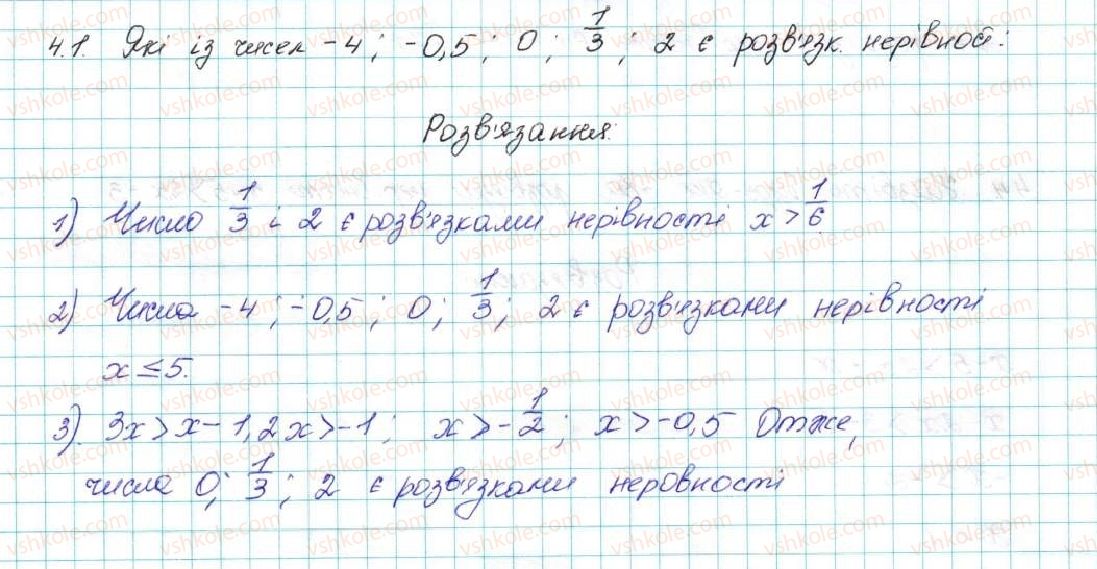 4.1. Які із чисел -4; -0,5; 0; 1/3; 2 є розв'язк. нерівност:
Розв'язання:
1) Число 1/3 і 2 є розв'язками нерівності x > 1/6
2) Числа -4; -0,5; 0; 1/3; 2 є розв'язками нерівності
x ≤ 5.
3). 3x > x - 1, 2x > -1; x > -1/2; x > -0,5 Отже,
числа 0; 1/3; 2 є розв'язками неровності